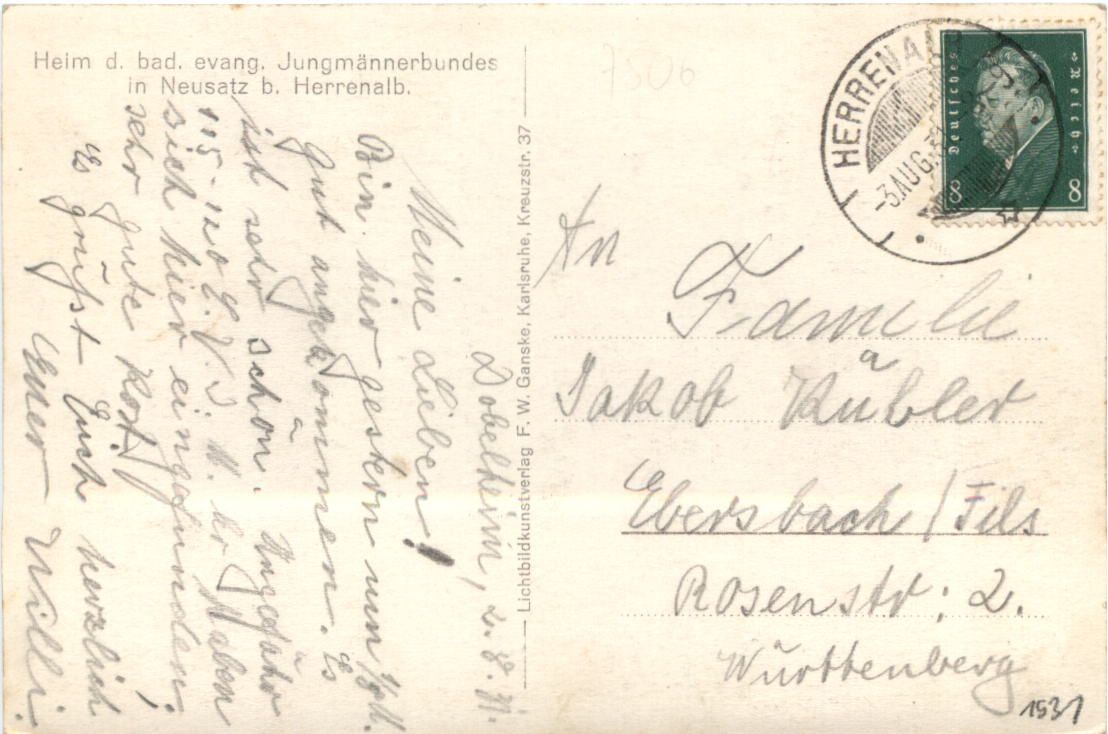 Heim d. bad. evang. Jungmännerbundes
in Neusatz b. Herrenalb.
Dobelheim, 2. 8. 31.
Meine Lieben!
Bin hier gestern um
gut angekommen. Es
ist sehr schön. Ungefähr
115-120 haben
sich hier eingefunden.
sehr gute Kost.
Es grüßt Euch herzlich
Euer Willi.
Lichtbildkunstverlag F. W. Ganske, Karlsruhe, Kreuzstr. 37
7506
HERRENALB
-3.AUG.31
Deutsches Reich
8 8
An
Familie
Jakob Kübler
Ebersbach / Fils
Rosenstr: 2.
Württemberg
1931